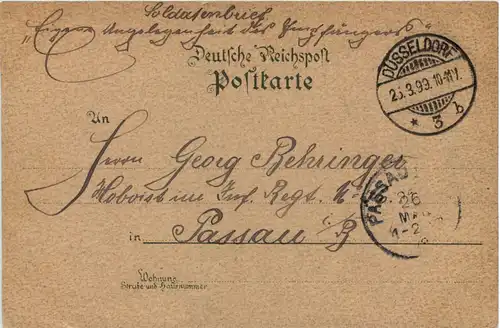 Soldatenbrief
"Eigene Angelegenheit des Empfängers"
Deutsche Reichspost
Postkarte
DÜSSELDORF
25.3.99. 10-11V.
* 3 b
An
Herrn Georg Behringer
Hoboist im Inf. Regt.
PASSAU
26
MAR
1-2
in Passau i/B
Wohnung
Straße und Hausnummer